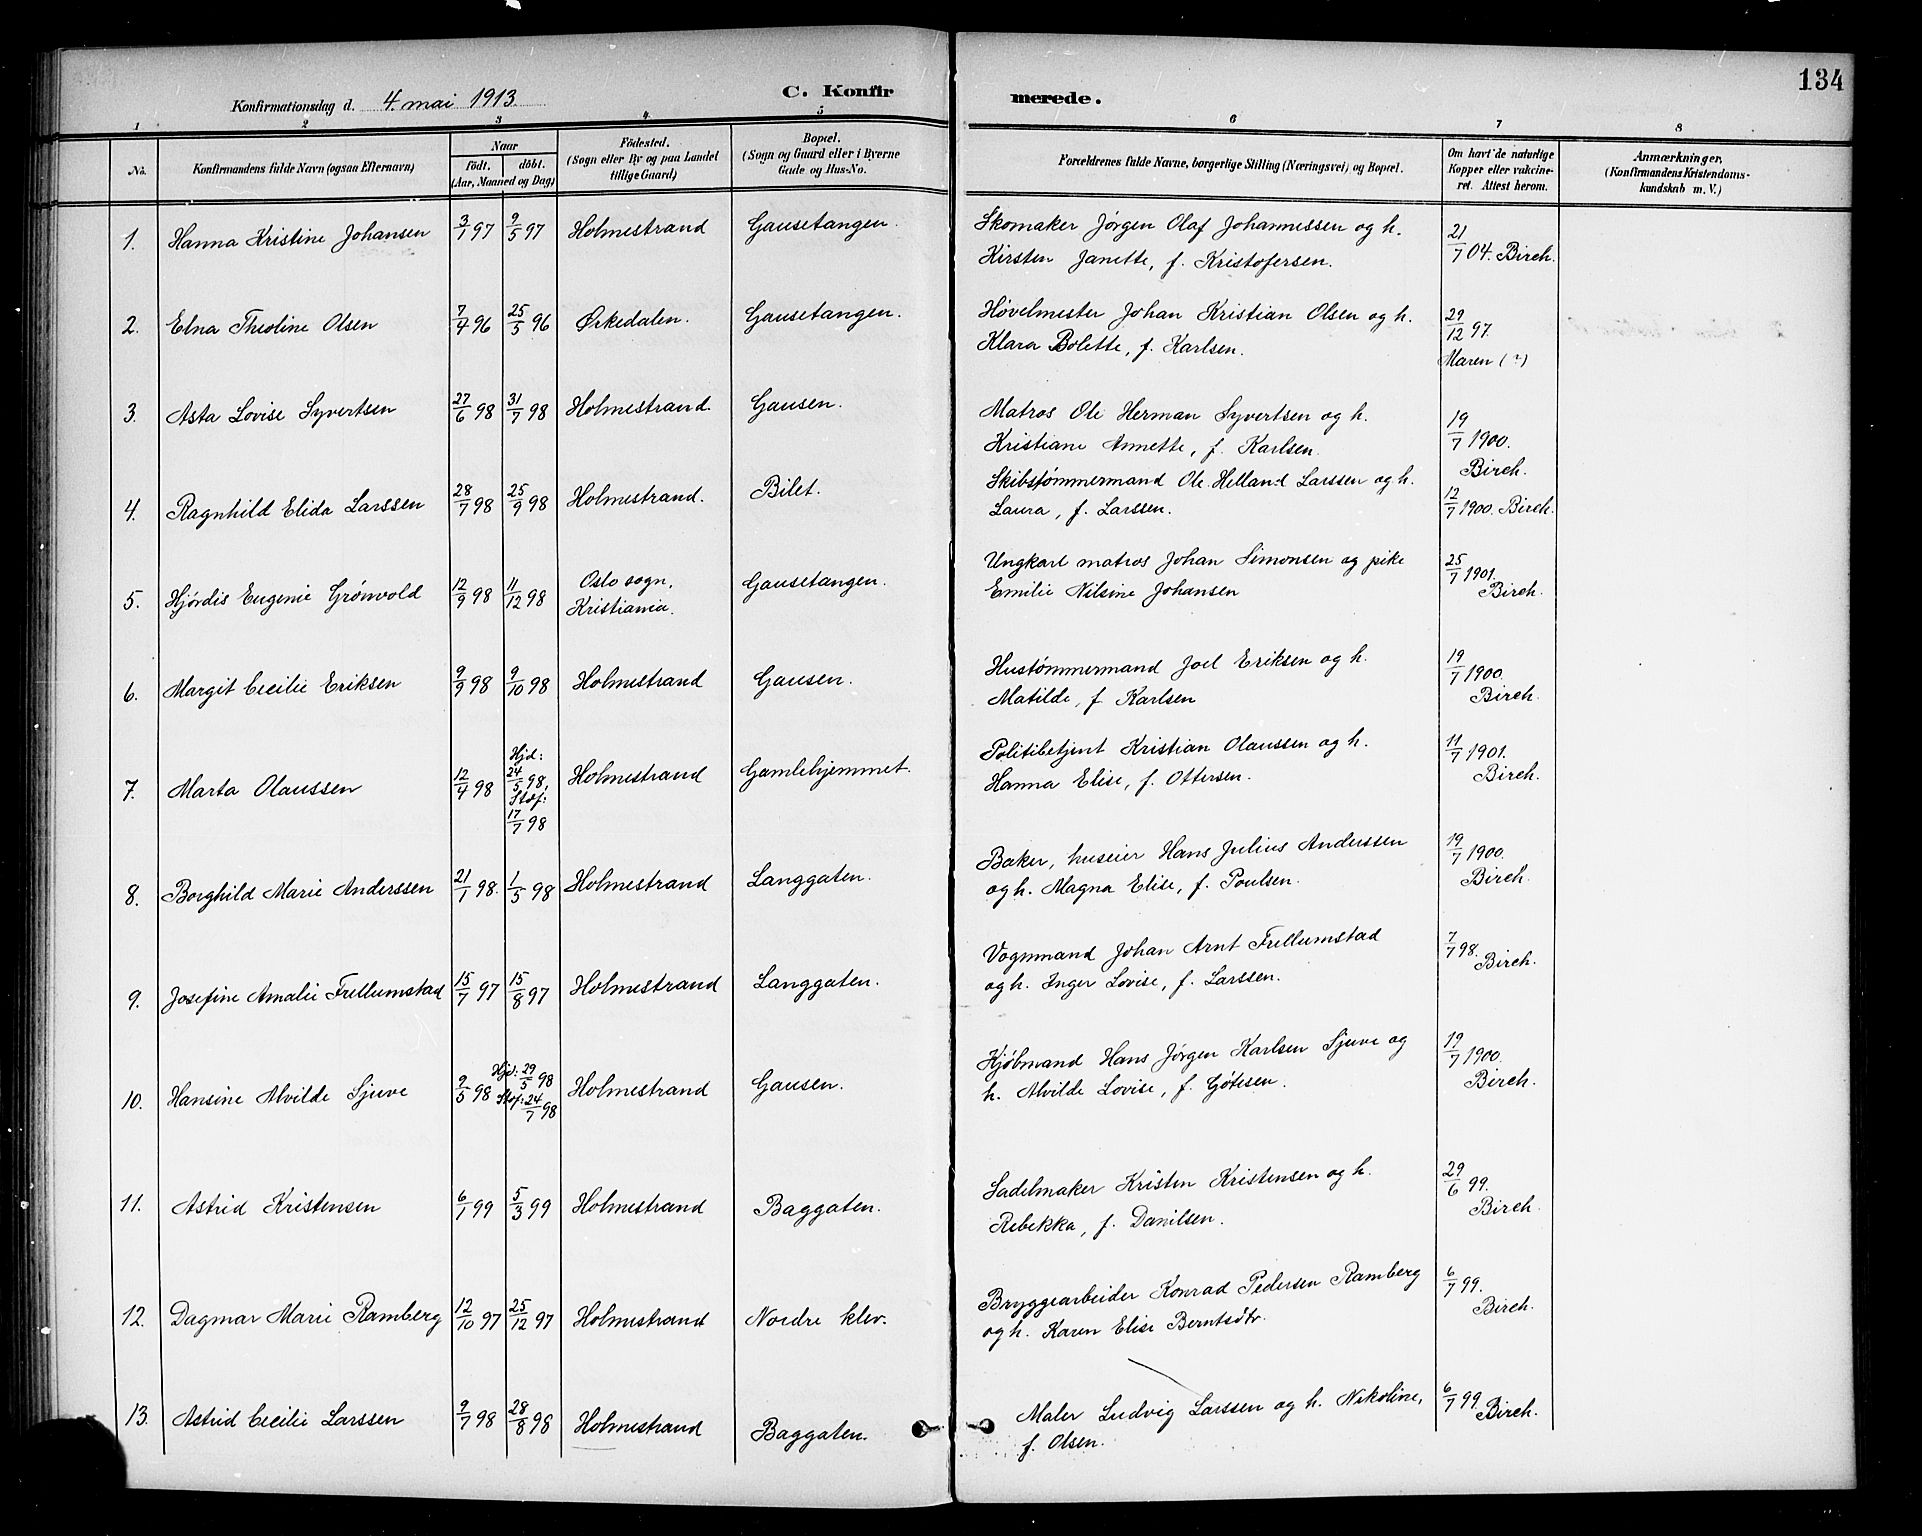 134
Konfirmationsdag d. 4. mai 1913
C. Konfirmerede.
1 2 3 4 5 6 7 8
No.
Konfirmandens fulde Navn (ogsaa Efternavn)
Naar
födt. döbt.
(Aar, Maaned og Dag)
Födested.
(Sogn eller By og paa Landet
tillige Gaard)
Bopæl.
(Sogn og Gaard eller i Byerne
Gade og Hus-No.
Forældrenes fulde Navne, borgerlige Stilling (Næringsvei) og Bopæl.
Om havt de naturlige
Kopper eller vakcine-
ret. Attest herom.
Anmærkninger,
(Konfirmandens Kristendoms-
kundskab m. V.)
1. Hanna Kristine Johansen 3/7 97 9/5 97 Holmestrand Gausetangen.
Skomaker Jørgen Olaf Johannessen og h.
Kirsten Janette, f. Kristofersen.
21/7 04. Birch.
2. Elna Theoline Olsen 7/4 96 25/5 96 Ørkedalen. Gausetangen.
Høvelmester Johan Kristian Olsen og h.
Klara Bolette, f. Karlsen.
29/12 97.
Maren (?)
3. Asta Lovise Syvertsen 27/6 98 31/7 98 Holmestrand. Gausen.
Matros Ole Herman Syvertsen og h.
Kristiane Annette, f. Karlsen.
19/7 1900.
Birch.
4. Ragnhild Elida Larssen 28/7 98 25/9 98 Holmestrand. Bilet.
Skibstømmermand Ole Helland Larssen og h.
Laura, f. Larssen.
12/7 1900. Birch.
5. Hjørdis Eugenie Grønvold 12/9 98 11/12 98 Oslo sogn,
Kristiania.
Gausetangen.
Ungkarl matros Johan Simonsen og pike
Emilie Nilsine Johansen
25/7 1901.
Birch.
6. Margit Cecilie Eriksen 9/9 98 9/10 98 Holmestrand Gausen.
Hustømmermand Joel Eriksen og h.
Matilde, f. Karlsen
19/7 1900.
Birch.
7. Marta Olaussen 12/4 98 Hjd:
24/5 98,
Stæf:
17/7 98
Holmestrand Gamlehjemmet.
Politibetjent Kristian Olaussen og h.
Hanna Elise, f. Ottersen.
11/7 1901.
Birch.
8. Borghild Marie Anderssen 21/1 98. 1/5 98 Holmestrand Langgaten.
Baker, huseier Hans Julius Anderssen
og h. Magna Elise, f. Poulsen.
19/7 1900.
Birch.
9. Josefine Amalie Frellumstad 15/7 97 15/8 97 Holmestrand Langgaten.
Vognmand Johan Arnt Frellumstad
og h. Inger Lovise, f. Larssen.
7/7 98.
Birch.
10. Hansine Alvilde Sjuve 9/5 98 Hjd: 29/5 98
Stæf: 24/7 98
Holmestrand Gausen.
Kjøbmand Hans Jørgen Karlsen Sjuve og
h. Alvilde Lovise, f. Gøtesen.
19/7 1900.
Birch.
11. Astrid Kristensen 6/1 99 5/3 99 Holmestrand Baggaten.
Sadelmaker Kristen Kristensen og h.
Rebekka, f. Danilsen.
29/6 99.
Birch.
12. Dagmar Marie Ramberg 12/10 97 25/12 97 Holmestrand Nordre klev.
Bryggearbeider Konrad Pedersen Ramberg
og h. Karen Elise Berntsdtr.
6/7 99.
Birch.
13. Astrid Cecilie Larssen 9/7 98 28/8 98 Holmestrand Baggaten.
Maler Ludvig Larssen og h. Nikoline,
f. Olsen.
6/7 99 Birch.